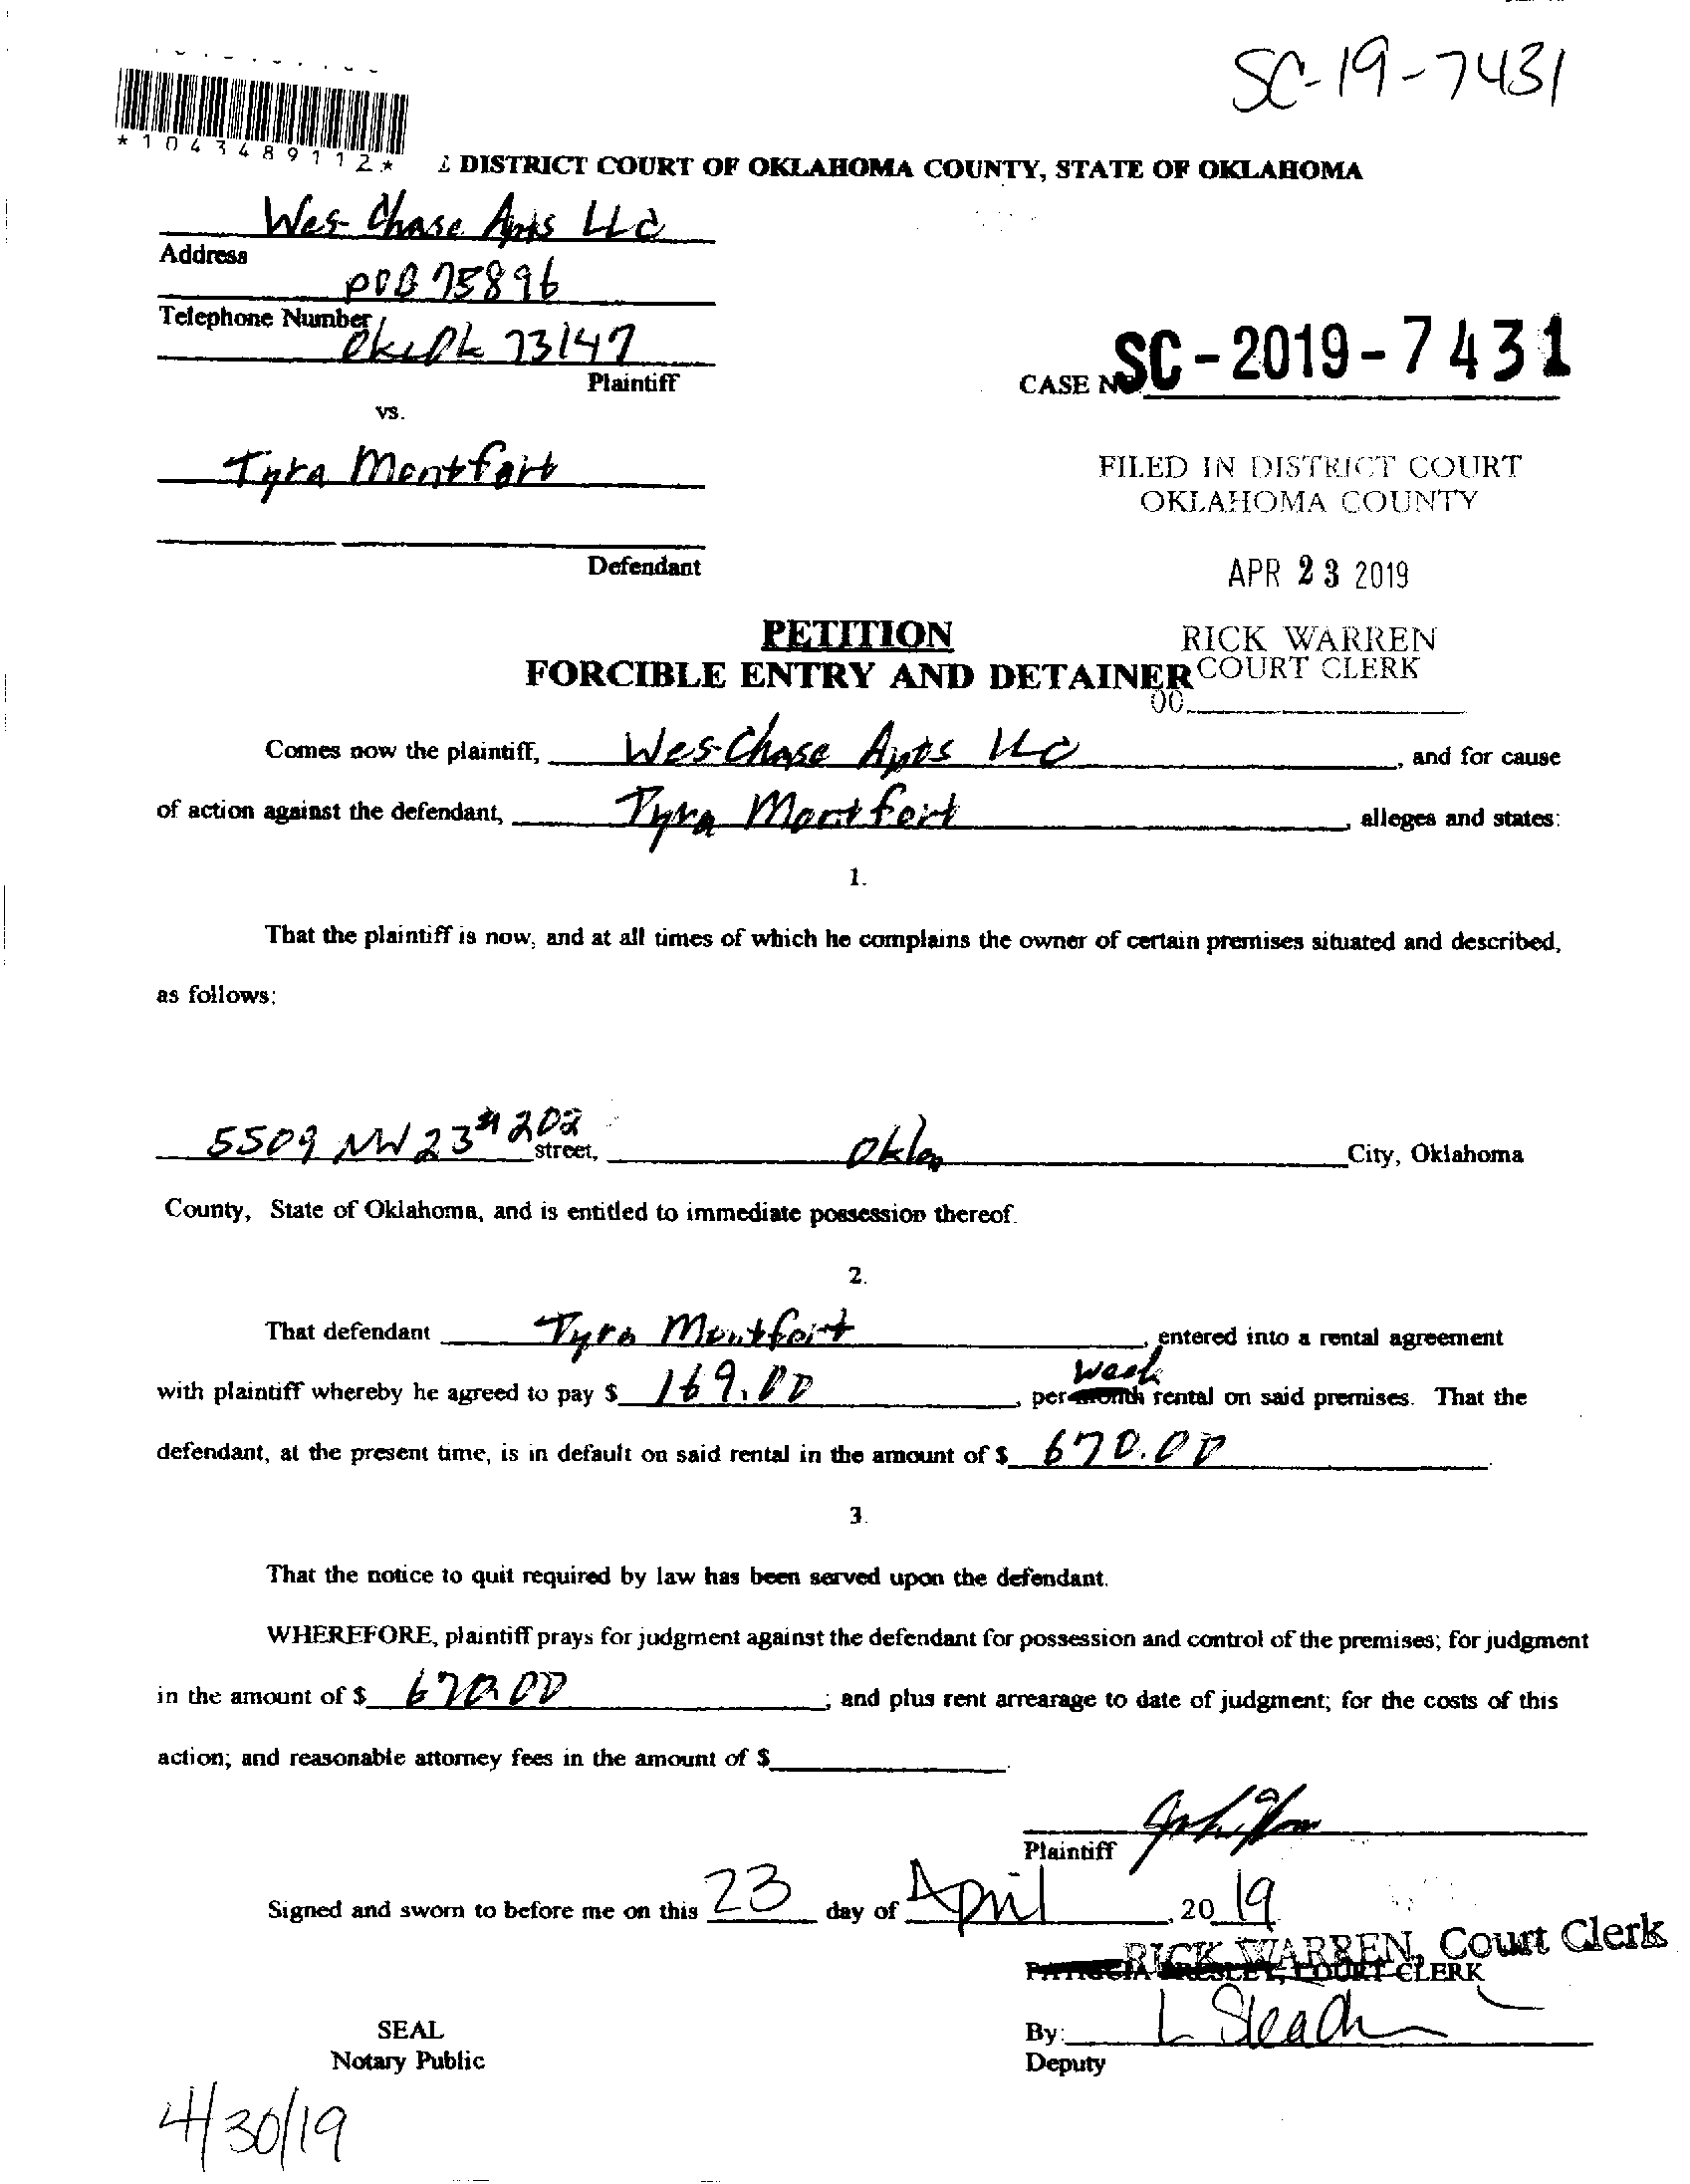 SC-19-7431
*1043489112*
DISTRICT COURT OF OKLAHOMA COUNTY, STATE OF OKLAHOMA
Wes Chase Apts LLC
Address
POB 75896
Telephone Number
73147
Plaintiff
CASE NO. SC-2019-7431
vs.
Tyra Montfort
FILED IN DISTRICT COURT
OKLAHOMA COUNTY
Defendant
APR 23 2019
PETITION
RICK WARREN
FORCIBLE ENTRY AND DETAINER COURT CLERK
00
Comes now the plaintiff, Wes Chase Apts LLC, and for cause
of action against the defendant, Tyra Montfort, alleges and states:
1.
That the plaintiff is now, and at all times of which he complains the owner of certain premises situated and described,
as follows:
5509 NW 23 #202 street, City, Oklahoma
County, State of Oklahoma, and is entitled to immediate possession thereof.
2.
That defendant Tyra Montfort, entered into a rental agreement
week
with plaintiff whereby he agreed to pay $ 169.00, per month rental on said premises. That the
defendant, at the present time, is in default on said rental in the amount of $ 670.00.
3.
That the notice to quit required by law has been served upon the defendant.
WHEREFORE, plaintiff prays for judgment against the defendant for possession and control of the premises; for judgment
in the amount of $ 670.00; and plus rent arrearage to date of judgment; for the costs of this
action; and reasonable attorney fees in the amount of $
Plaintiff
Signed and sworn to before me on this 23 day of April, 2019
RICK WARREN, Court Clerk
PATRICIA PRESLEY, COURT CLERK
SEAL
By:
Notary Public
Deputy
4/30/19